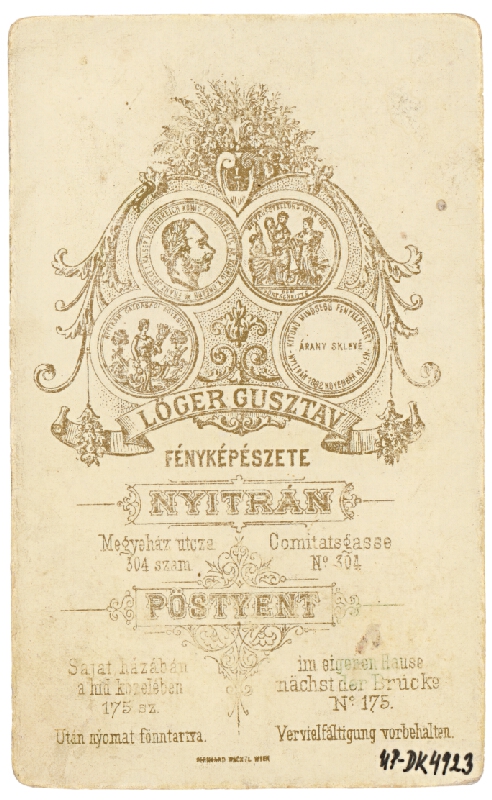 ARANY SKLEVÉ
LÓGER GUSZTÁV
FÉNYKÉPÉSZETE
NYITRÁN
Megyeház utcza
304 szám
Comitatsgasse
No 304
PÖSTYENT
Saját házában
a híd közelében
175 sz.
im eigenen Hause
nächst der Brücke
No 175.
Után nyomat fönntartva.
Vervielfältigung vorbehalten.
WIEN
UP-DK4923